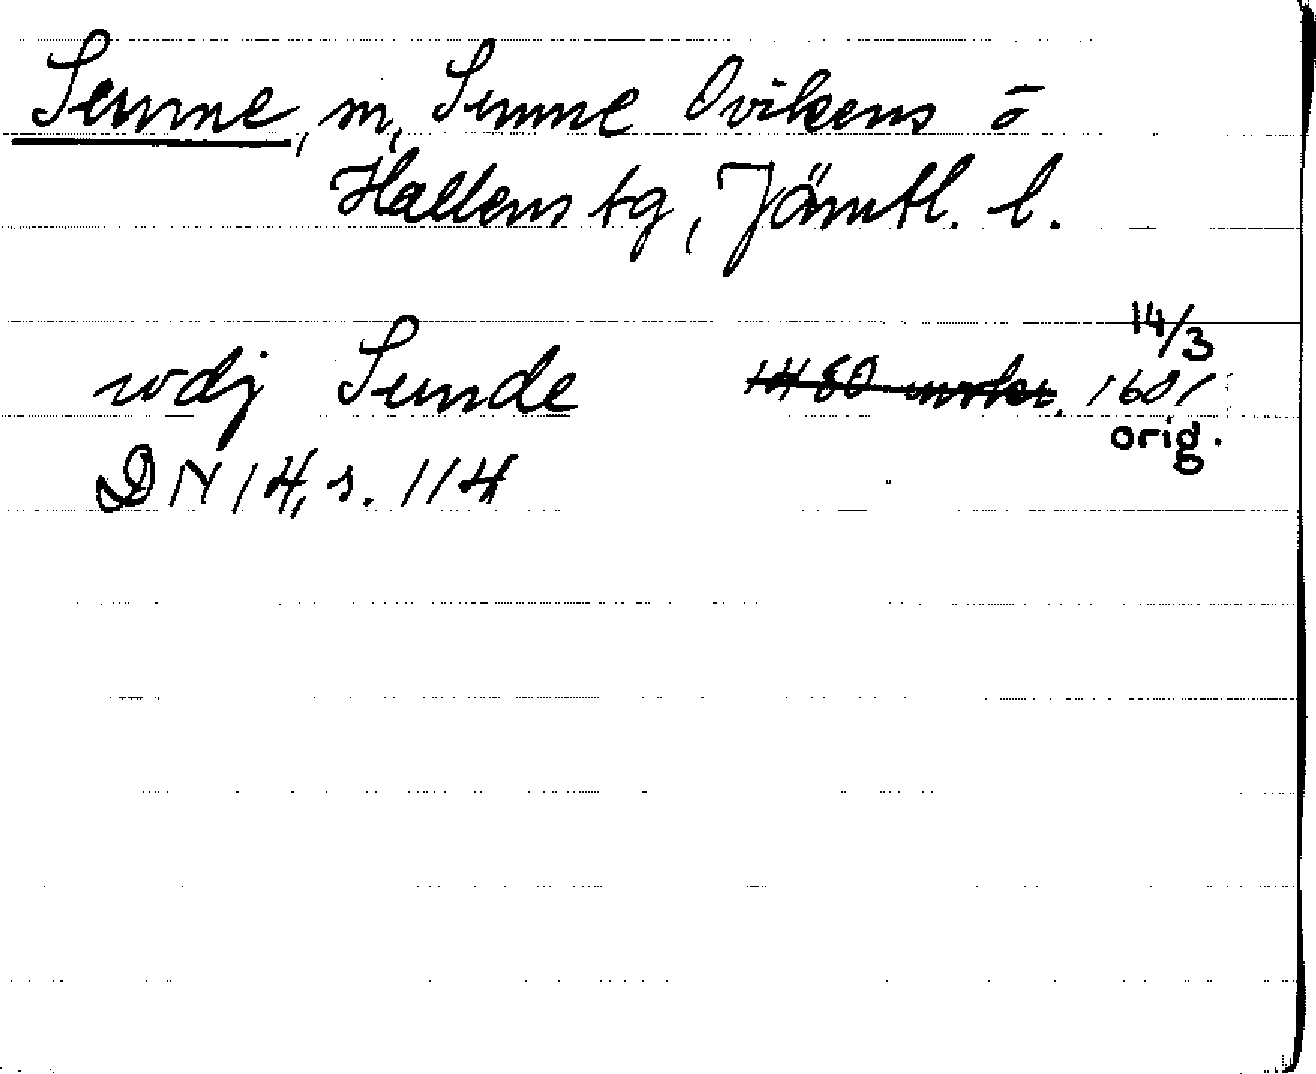 Sunne, m, Sunne Ovikens ō
Hallens tg, Jämtl. l.
14/3
wdj Sunde 1480 1681
orig.
DN 14, s. 114